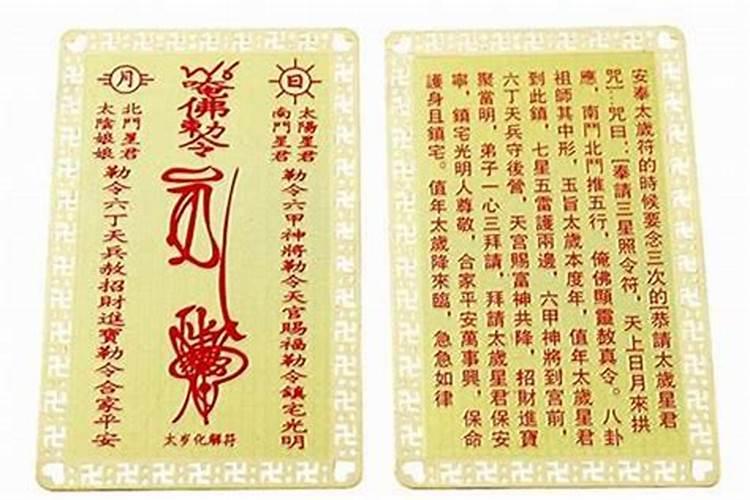 日
太陽星君
南鬥星君
勒令六甲神將勒令天官賜福勒令鎮宅光明
唵佛勅令
太岁化解符
月
北鬥星君
太陰娘娘
勒令六丁天兵赦招財進寶勒令合家平安
安奉太歲符的時候要念三次的[恭請太歲星君
咒]:咒曰:[奉請三星照令符，天上日月來拱
應，南鬥北鬥推五行，俺佛顯靈敖真令。八卦
祖師其中形，玉旨太歲本度年，值年太歲星君
到此鎮，七星五雷護兩邊，六甲神將到宫前，
六丁天兵守後營，天宫賜富神共降，招財進寶
聚當明，弟子一心三拜請，拜請太歲星君保安
寧，鎮宅光明人尊敬，合家平安萬事興，保命
護身且鎮宅。值年太歲降來臨，急急如律